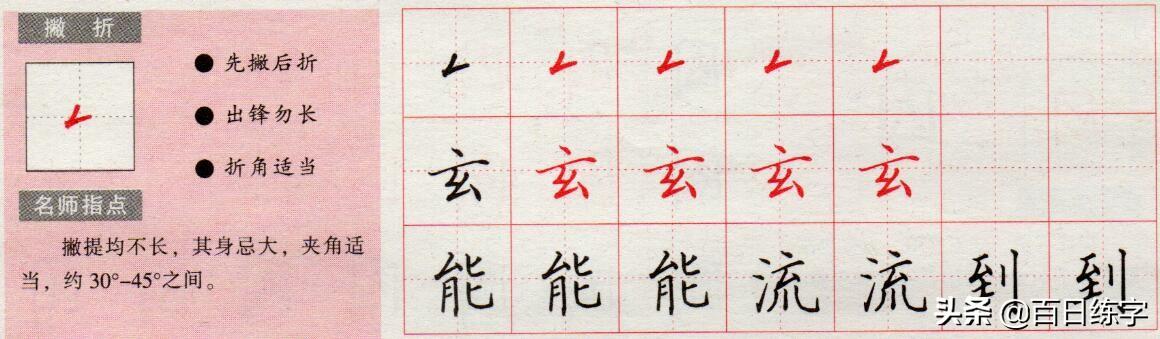 撇 折
● 先撇后折
● 出锋勿长
● 折角适当
名师指点
撇提均不长，其身忌大，夹角适
当，约30°–45°之间。
玄 玄 玄 玄 玄
能 能 能 流 流 到 到
头条 @百日练字